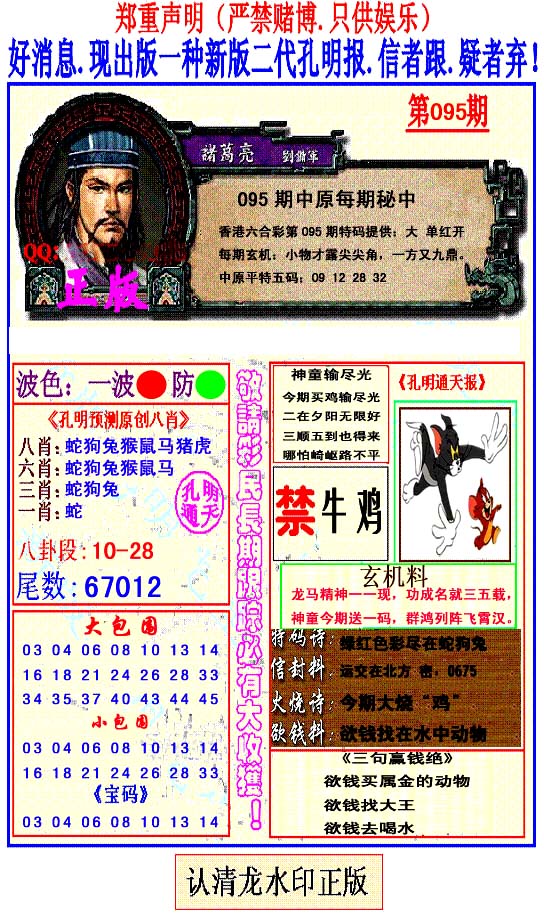 郑重声明（严禁赌博.只供娱乐）
好消息.现出版一种新版二代孔明报.信者跟.疑者弃！
第095期
諸葛亮 劉備軍
095 期中原每期秘中
香港六合彩第 095 期特码提供：大 单红开
每期玄机：小物才露尖尖角，一方又九鼎。
中原平特五码：09 12 28 32
QQ:
正版
波色：一波 防
《孔明预测原创八肖》
八肖：蛇狗兔猴鼠马猪虎
六肖：蛇狗兔猴鼠马
三肖：蛇狗兔
一肖：蛇
孔明
通天
八卦段：10-28
尾数：67012
大包围
03 04 06 08 10 13 14
16 18 21 24 26 28 33
34 35 37 40 43 44 45
小包围
03 04 06 08 10 13 14
16 18 21 24 26 28 33
《宝码》
03 04 06 08 10 13 14
敬請彩民長期跟踪必有大收獲！
神童输尽光
今期买鸡输尽光
二在夕阳无限好
三顺五到也得来
哪怕崎岖路不平
《孔明通天报》
禁牛鸡
玄机料
龙马精神一一现，功成名就三五载，
神童今期送一码，群鸿列阵飞霄汉。
特码诗：绿红色彩尽在蛇狗兔
信封料：运交在北方 密，0675
火烧诗：今期大烧“鸡”
欲钱料：欲钱找在水中动物
《三句赢钱绝》
欲钱买属金的动物
欲钱找大王
欲钱去喝水
认清龙水印正版